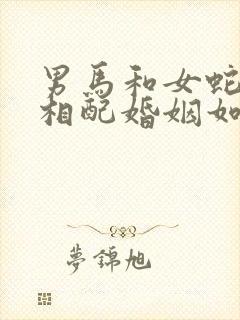 男馬和女蛇
相配婚姻如
夢錦旭